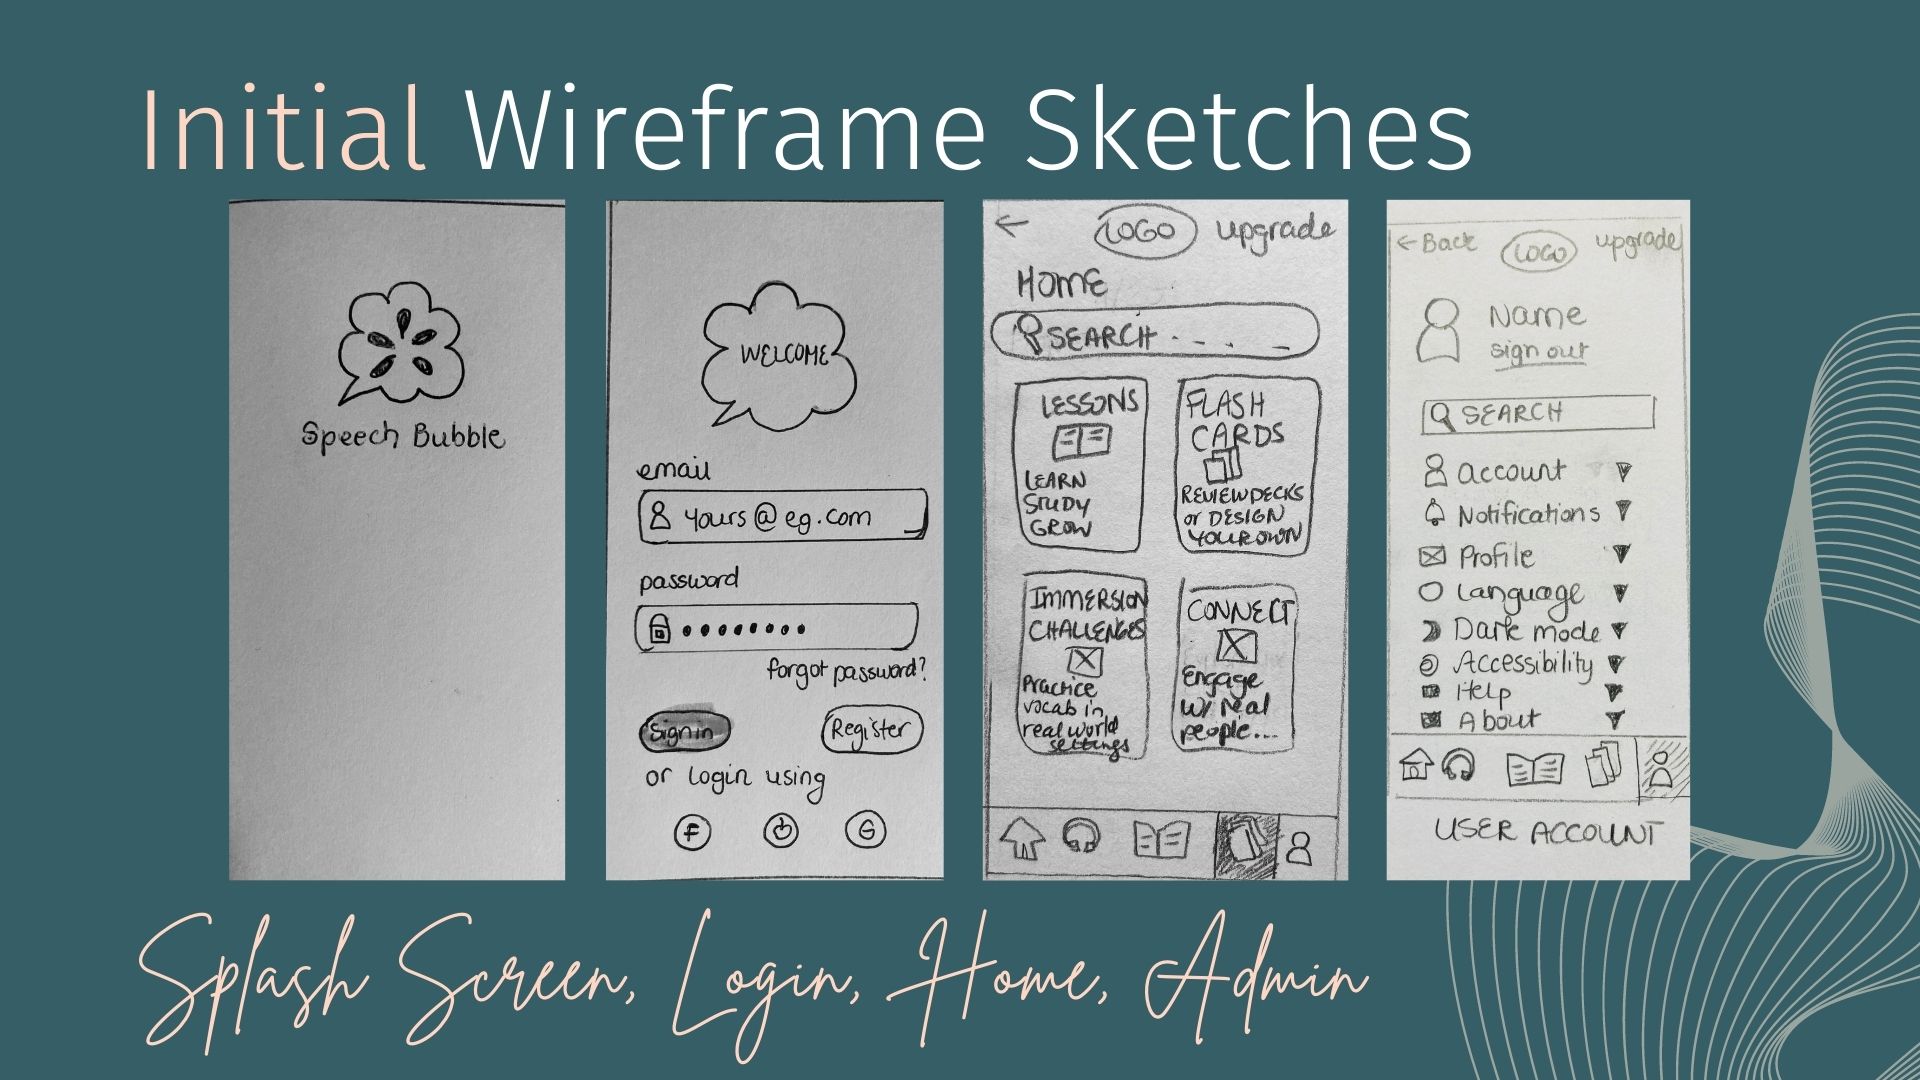 Initial Wireframe Sketches
Speech Bubble
WELCOME
email
yours@eg.com
password
forgot password?
Sign in
Register
or login using
f
G
LOGO
upgrade
HOME
SEARCH . - - . -
LESSONS
LEARN
STUDY
GROW
FLASH
CARDS
REVIEW DECKS
or DESIGN
YOUR OWN
IMMERSION
CHALLENGES
Practice
vocab in
real world
settings
CONNECT
Engage
w/ real
people...
← Back
LOGO
upgrade
Name
sign out
SEARCH
Account
Notifications
Profile
Language
Dark mode
Accessibility
Help
About
USER ACCOUNT
Splash Screen, Login, Home, Admin